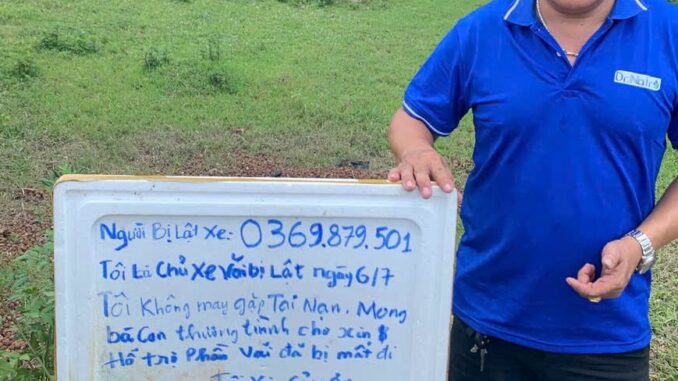 Dr.Nato
Người Bị Lật Xe: 0369.879.501
Tôi Là Chủ Xe Vải bị Lật ngày 6/7
Tôi Không may gặp Tai Nạn. Mong
bà Con thương tình cho xin $
Hỗ trợ Phần Vải đã bị mất đi
Tôi Xin